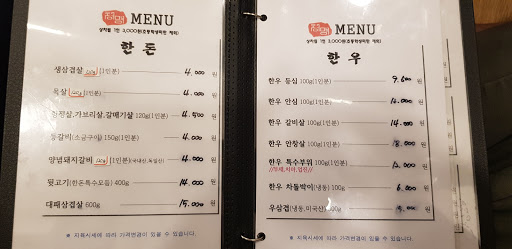 MENU
상차림 1인 3,000원(초등학생미만 제외)
한 돈
생삼겹살 100g (1인분) 4,000 원
목살 100g (1인분) 4,000 원
항정살,가브리살,갈매기살 120g(1인분) 4,500 원
등갈비(소금구이) 150g(1인분) 4,000 원
양념돼지갈비 100g (1인분) 4,000 원
뒷고기(한돈특수모듬) 400g 14,000 원
대패삼겹살 600g 15,000 원
※ 지육시세에 따라 가격변경이 있을 수 있습니다.
MENU
상차림 1인 3,000원(초등학생미만 제외)
한 우
한우 등심 100g(1인분) 9,600 원
한우 안심 100g(1인분) 원
한우 갈비살 100g(1인분) 14,000 원
한우 안창살 100g(1인분) 18,000 원
한우 특수부위 100g(1인분) 원
한우 차돌박이(냉동) 100g 6,000 원
우삼겹(냉동,미국산) 원
※ 지육시세에 따라 가격변경이 있을 수 있습니다.